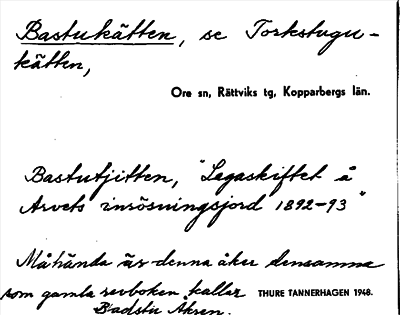 Bastukätten, se Torkstugu-
kätten,
Ore sn, Rättviks tg, Kopparbergs län.
Bastutjitten, "Legaskiftet å
Arvets insösningsjord 1892-93"
Måhända är denna åker densamma
som gamla revboken kallar THURE TANNERHAGEN 1948.
Badstu Åkren.